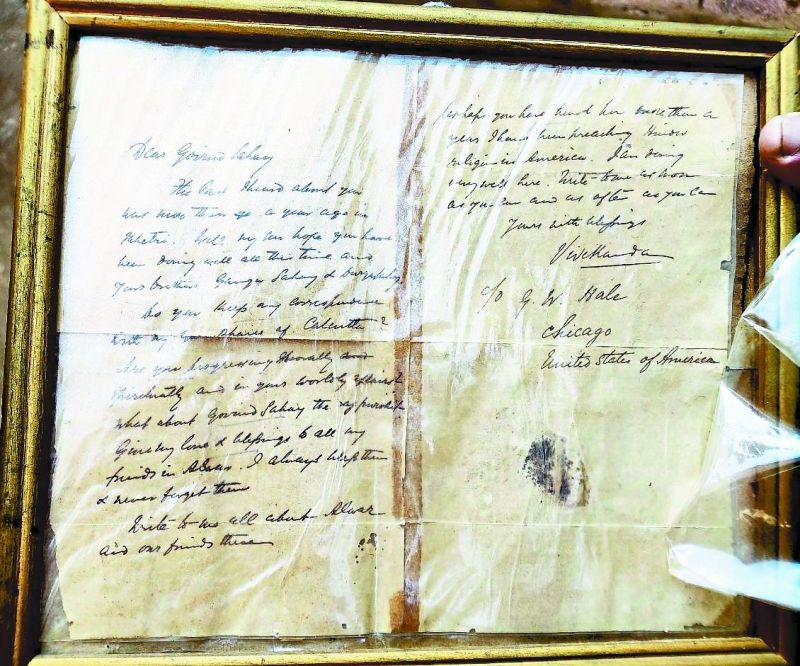 Dear Govind Sahay
The last I heard about you
was more than a year ago in
Khetri. Well my son hope you have
been doing well all this time and
your brothers Ganga Sahay &
Do you keep any correspondence
with my Guru Bhaies of Calcutta?
Are you progressing Morally and
spiritually and in your worldly affairs?
what about Govind Sahay the
Give my love & blessings to all my
friends in Alwar. I always bless them
& never forget them
Write to me all about Alwar
and our friends there
Perhaps you have heard how more than a
year I have been preaching Hindu
religion in America. I am doing
very well here. Write to me as soon
as you can and as often as you can
Yours with blessings
Vivekananda
c/o G. W. Hale
Chicago
United States of America